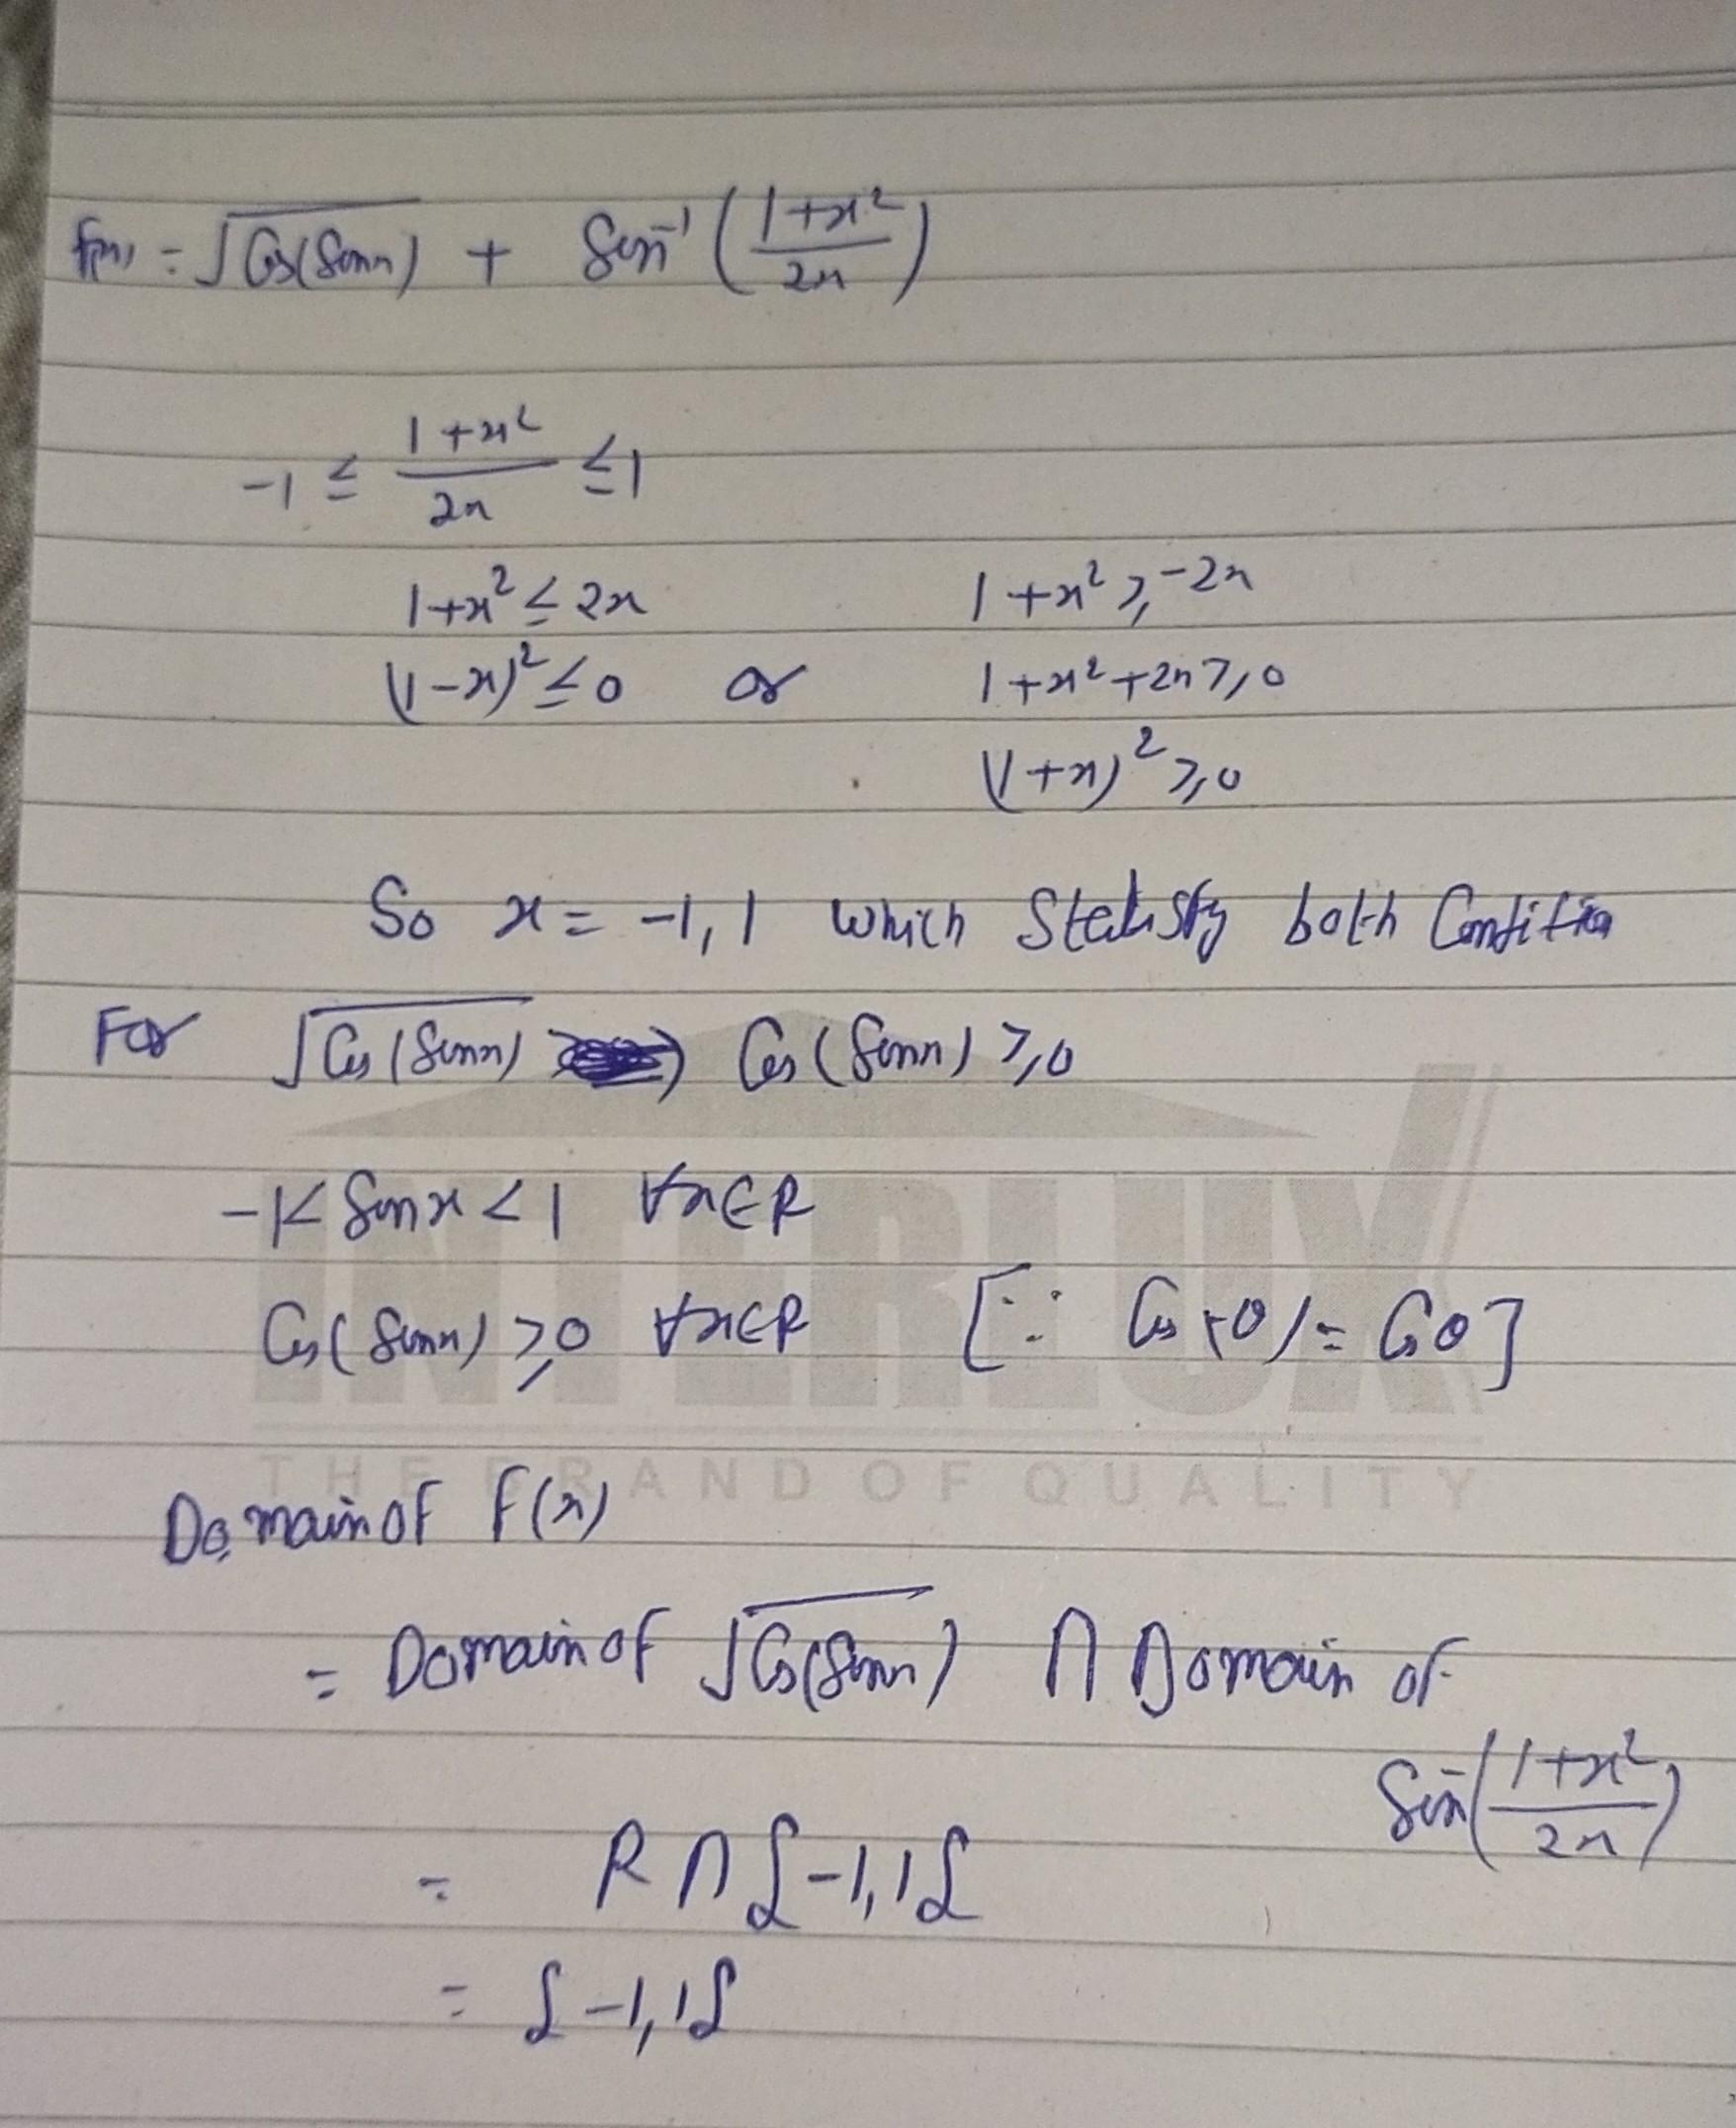 f(x) = √Cos(Sinx) + Sin⁻¹ (1+x²/2x)
-1 ≤ 1+x²/2x ≤ 1
1+x² ≤ 2x 1+x² ≥ -2x
(1-x)² ≤ 0 or 1+x²+2x ≥ 0
(1+x)² ≥ 0
So x = -1, 1 which Statisfy both Condition
For √Cos(Sinx) Cos(Sinx) ≥ 0
-1< Sinx < 1 ∀x∈R
Cos(Sinx) ≥ 0 ∀x∈R [∵ Cos(-θ) = Cosθ]
INTERLUX
THE BRAND OF QUALITY
Domain of F(x)
= Domain of √Cos(Sinx) ∩ Domain of
Sin⁻(1+x²/2x)
= R ∩ {-1, 1}
= {-1, 1}